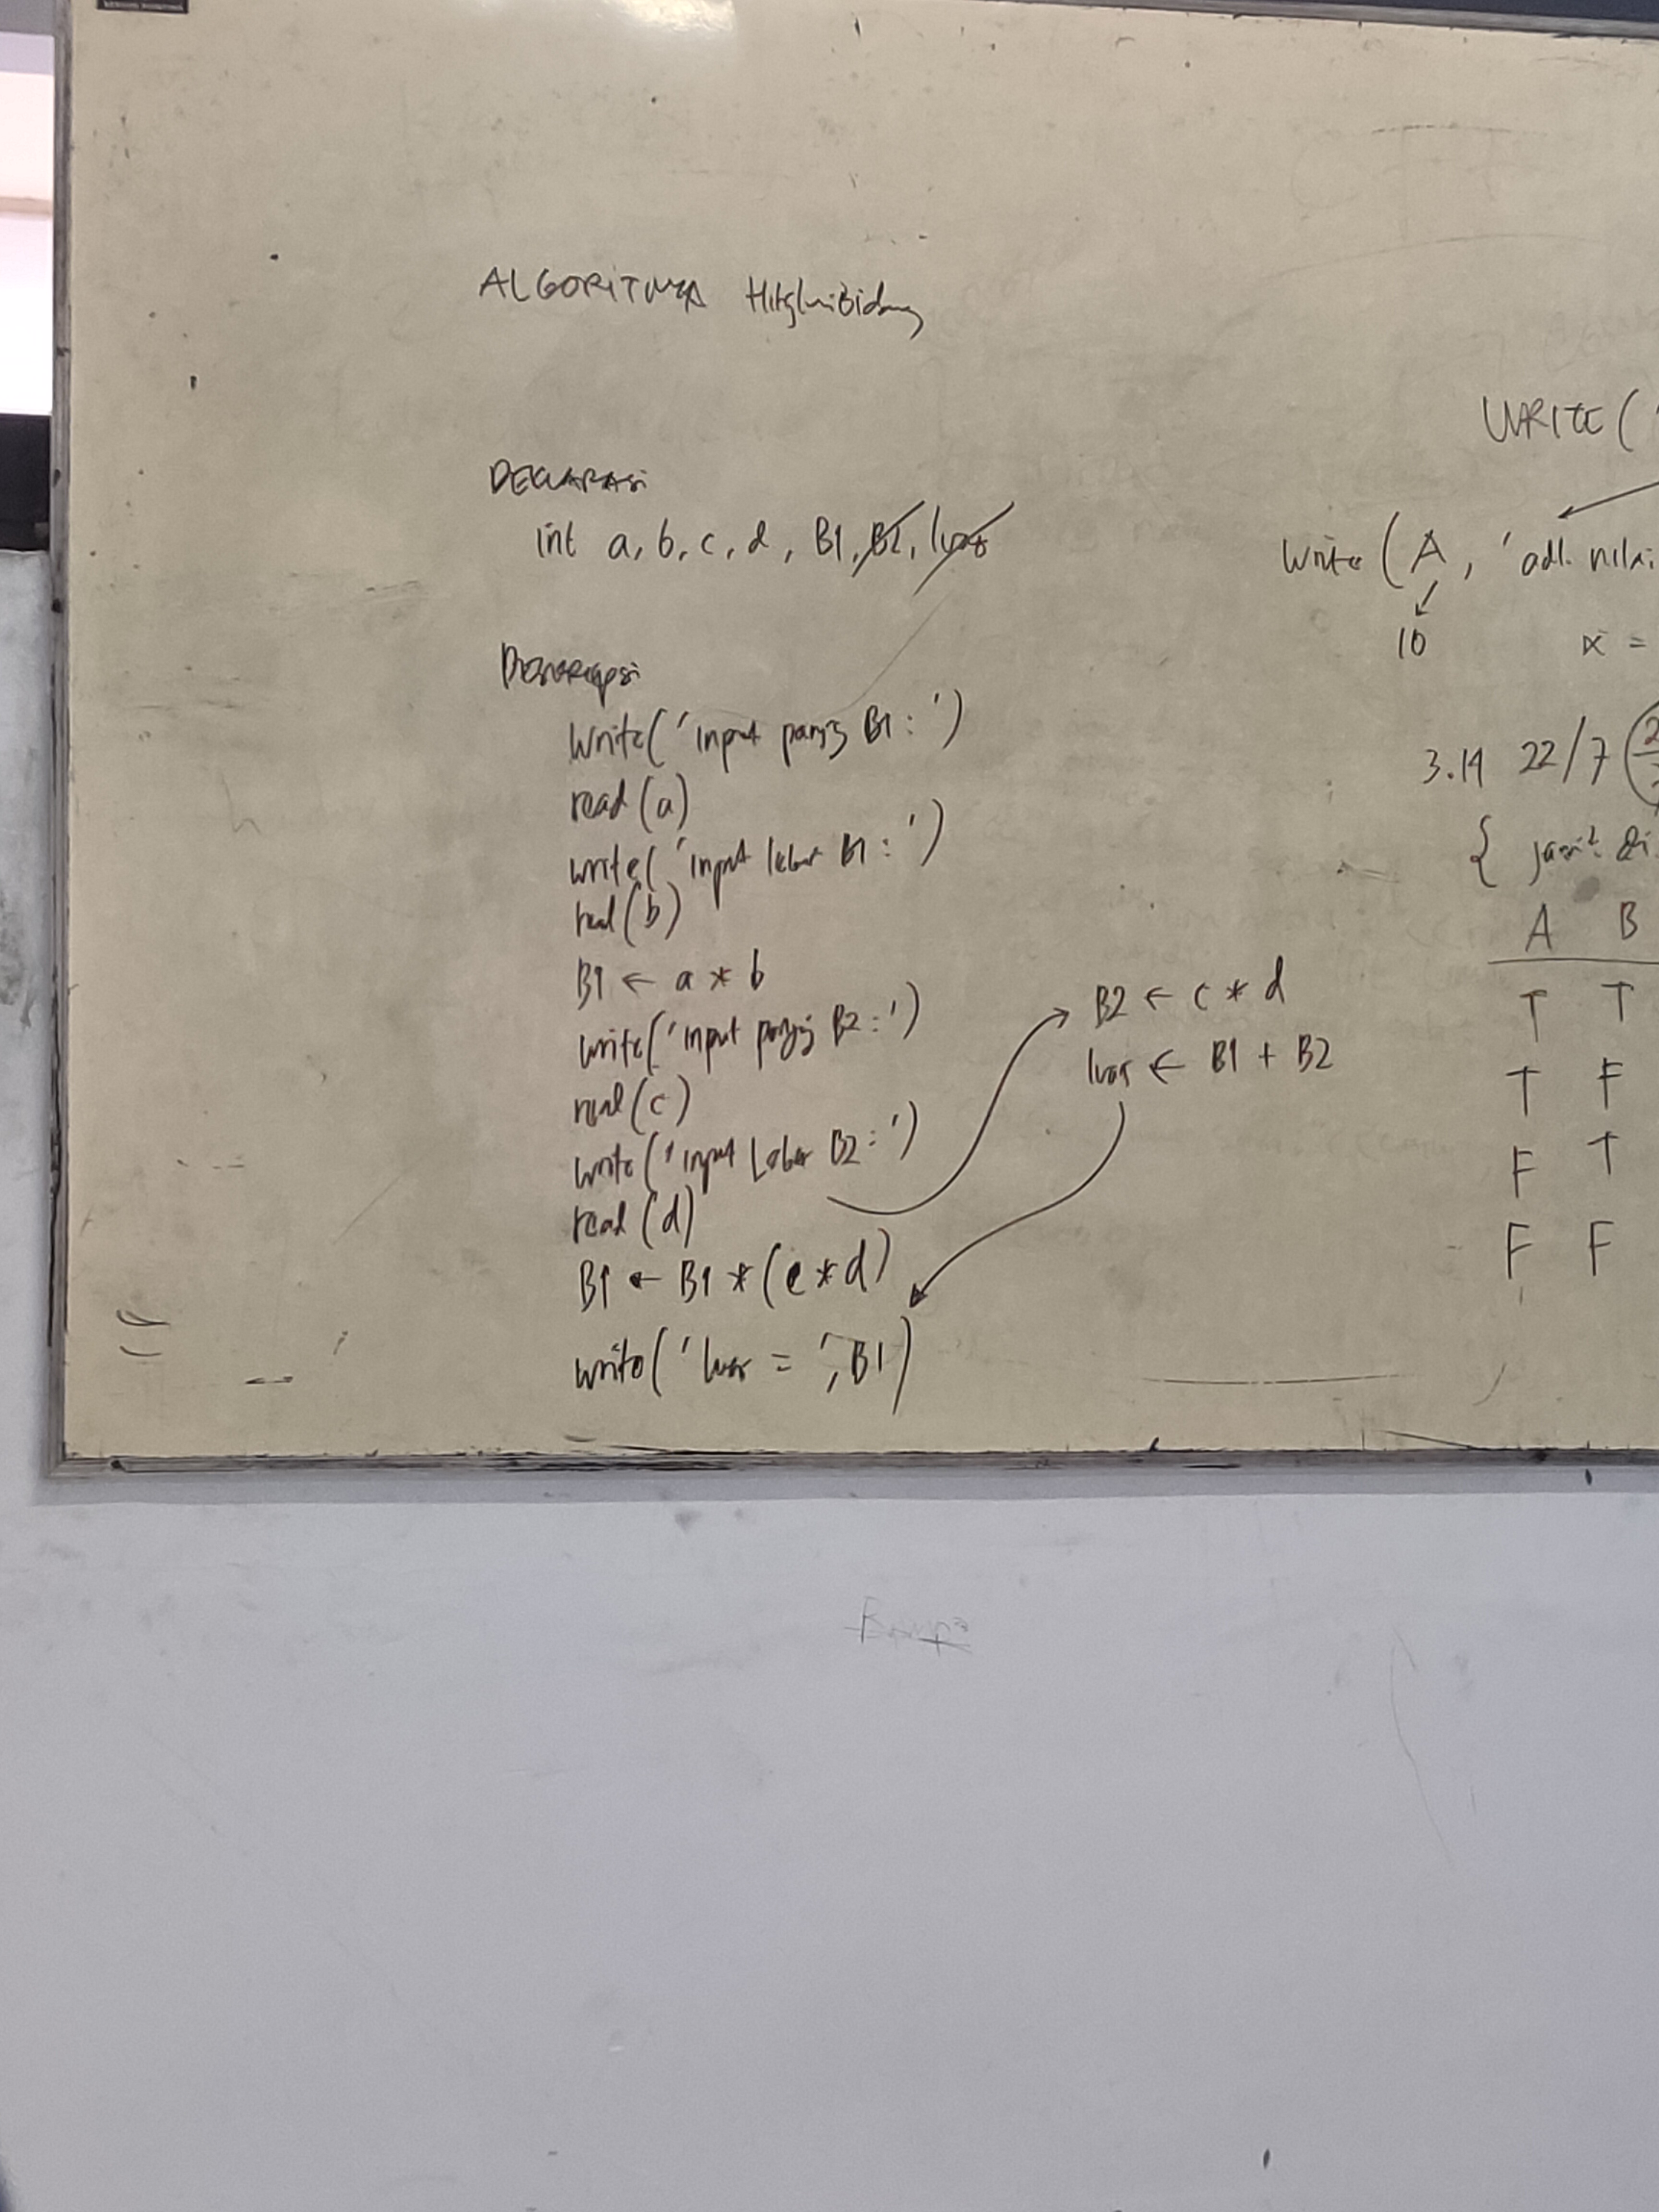 ALGORITMA HitgLuiBidang
DEKLARASI
int a, b, c, d, B1, B2, luas
DESKRIPSI
write('input panjg B1 : ')
read(a)
write('input lebar B1 : ')
read(b)
B1 ← a * b
write('input panjg B2 : ')
read(c)
write('input Lebar B2 : ')
read(d)
B1 ← B1 * (c * d)
write('luas = ', B1)
B2 ← c * d
luas ← B1 + B2
WRITE( '
write (A, 'adl. nilai
10 x =
3.14 22/7
{
A B
T T
T F
F T
F F